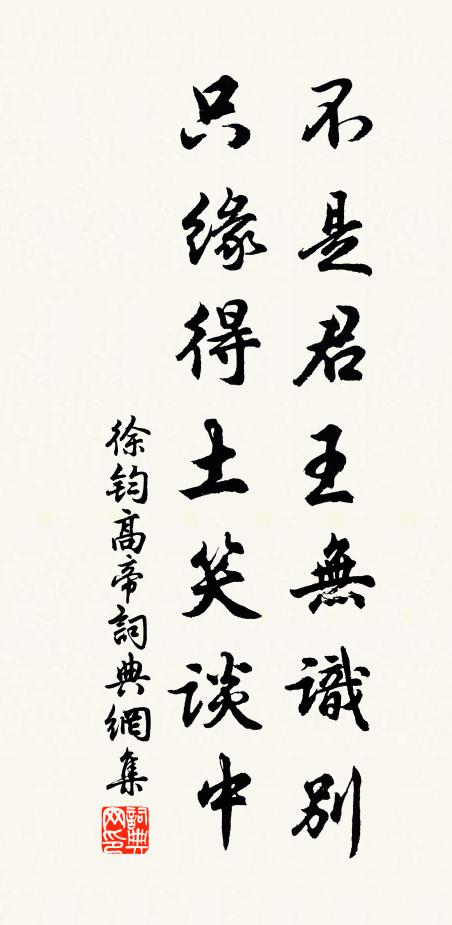 不是君王無識别
只緣得土笑談中
徐鈞高帝詞典網集
詞典网印